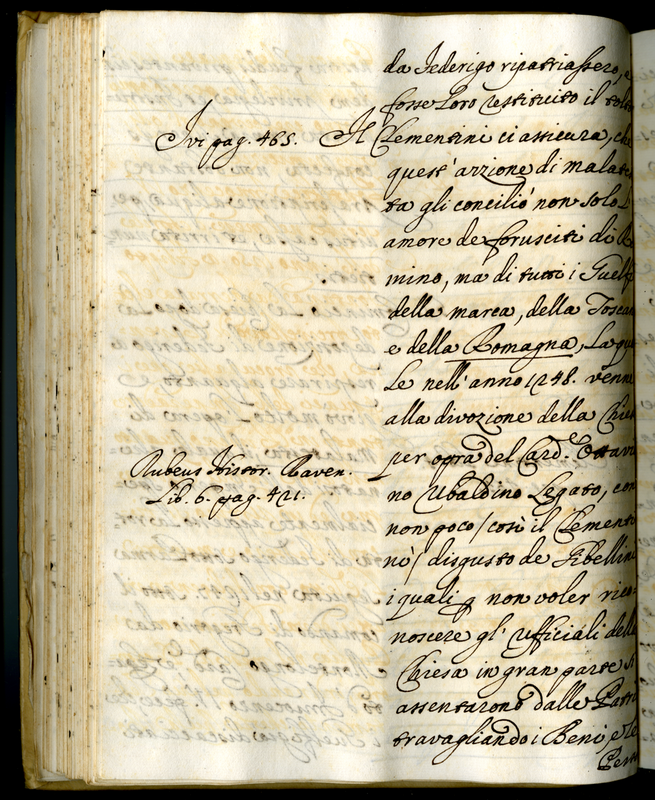 da Federigo ripatriassero, e
fosse Loro restituito il tolto
Ivi pag. 465.
Il Clementini ci assicura, che
quest'azzione di malates
ta gli conciliò non solo L'
amore de forusciti di Ri
mino, ma di tutti i Guelfi
della marca, della Toscana
e della Romagna, La qua
Le nell'anno 1248. venne
alla divozione della Chiesa
Rubeus Histor. Raven.
Lib. 6. pag. 421.
per opra del Card.e Ottavia
no Ubaldino Legato, con
non poco / così il Clementi
ni / disgusto de Gibellini
i quali p non voler rico=
noscere gl'Ufficiali della
Chiesa in gran parte si
assentarono dalle Patrie
travagliando i Beni, e le
Pers